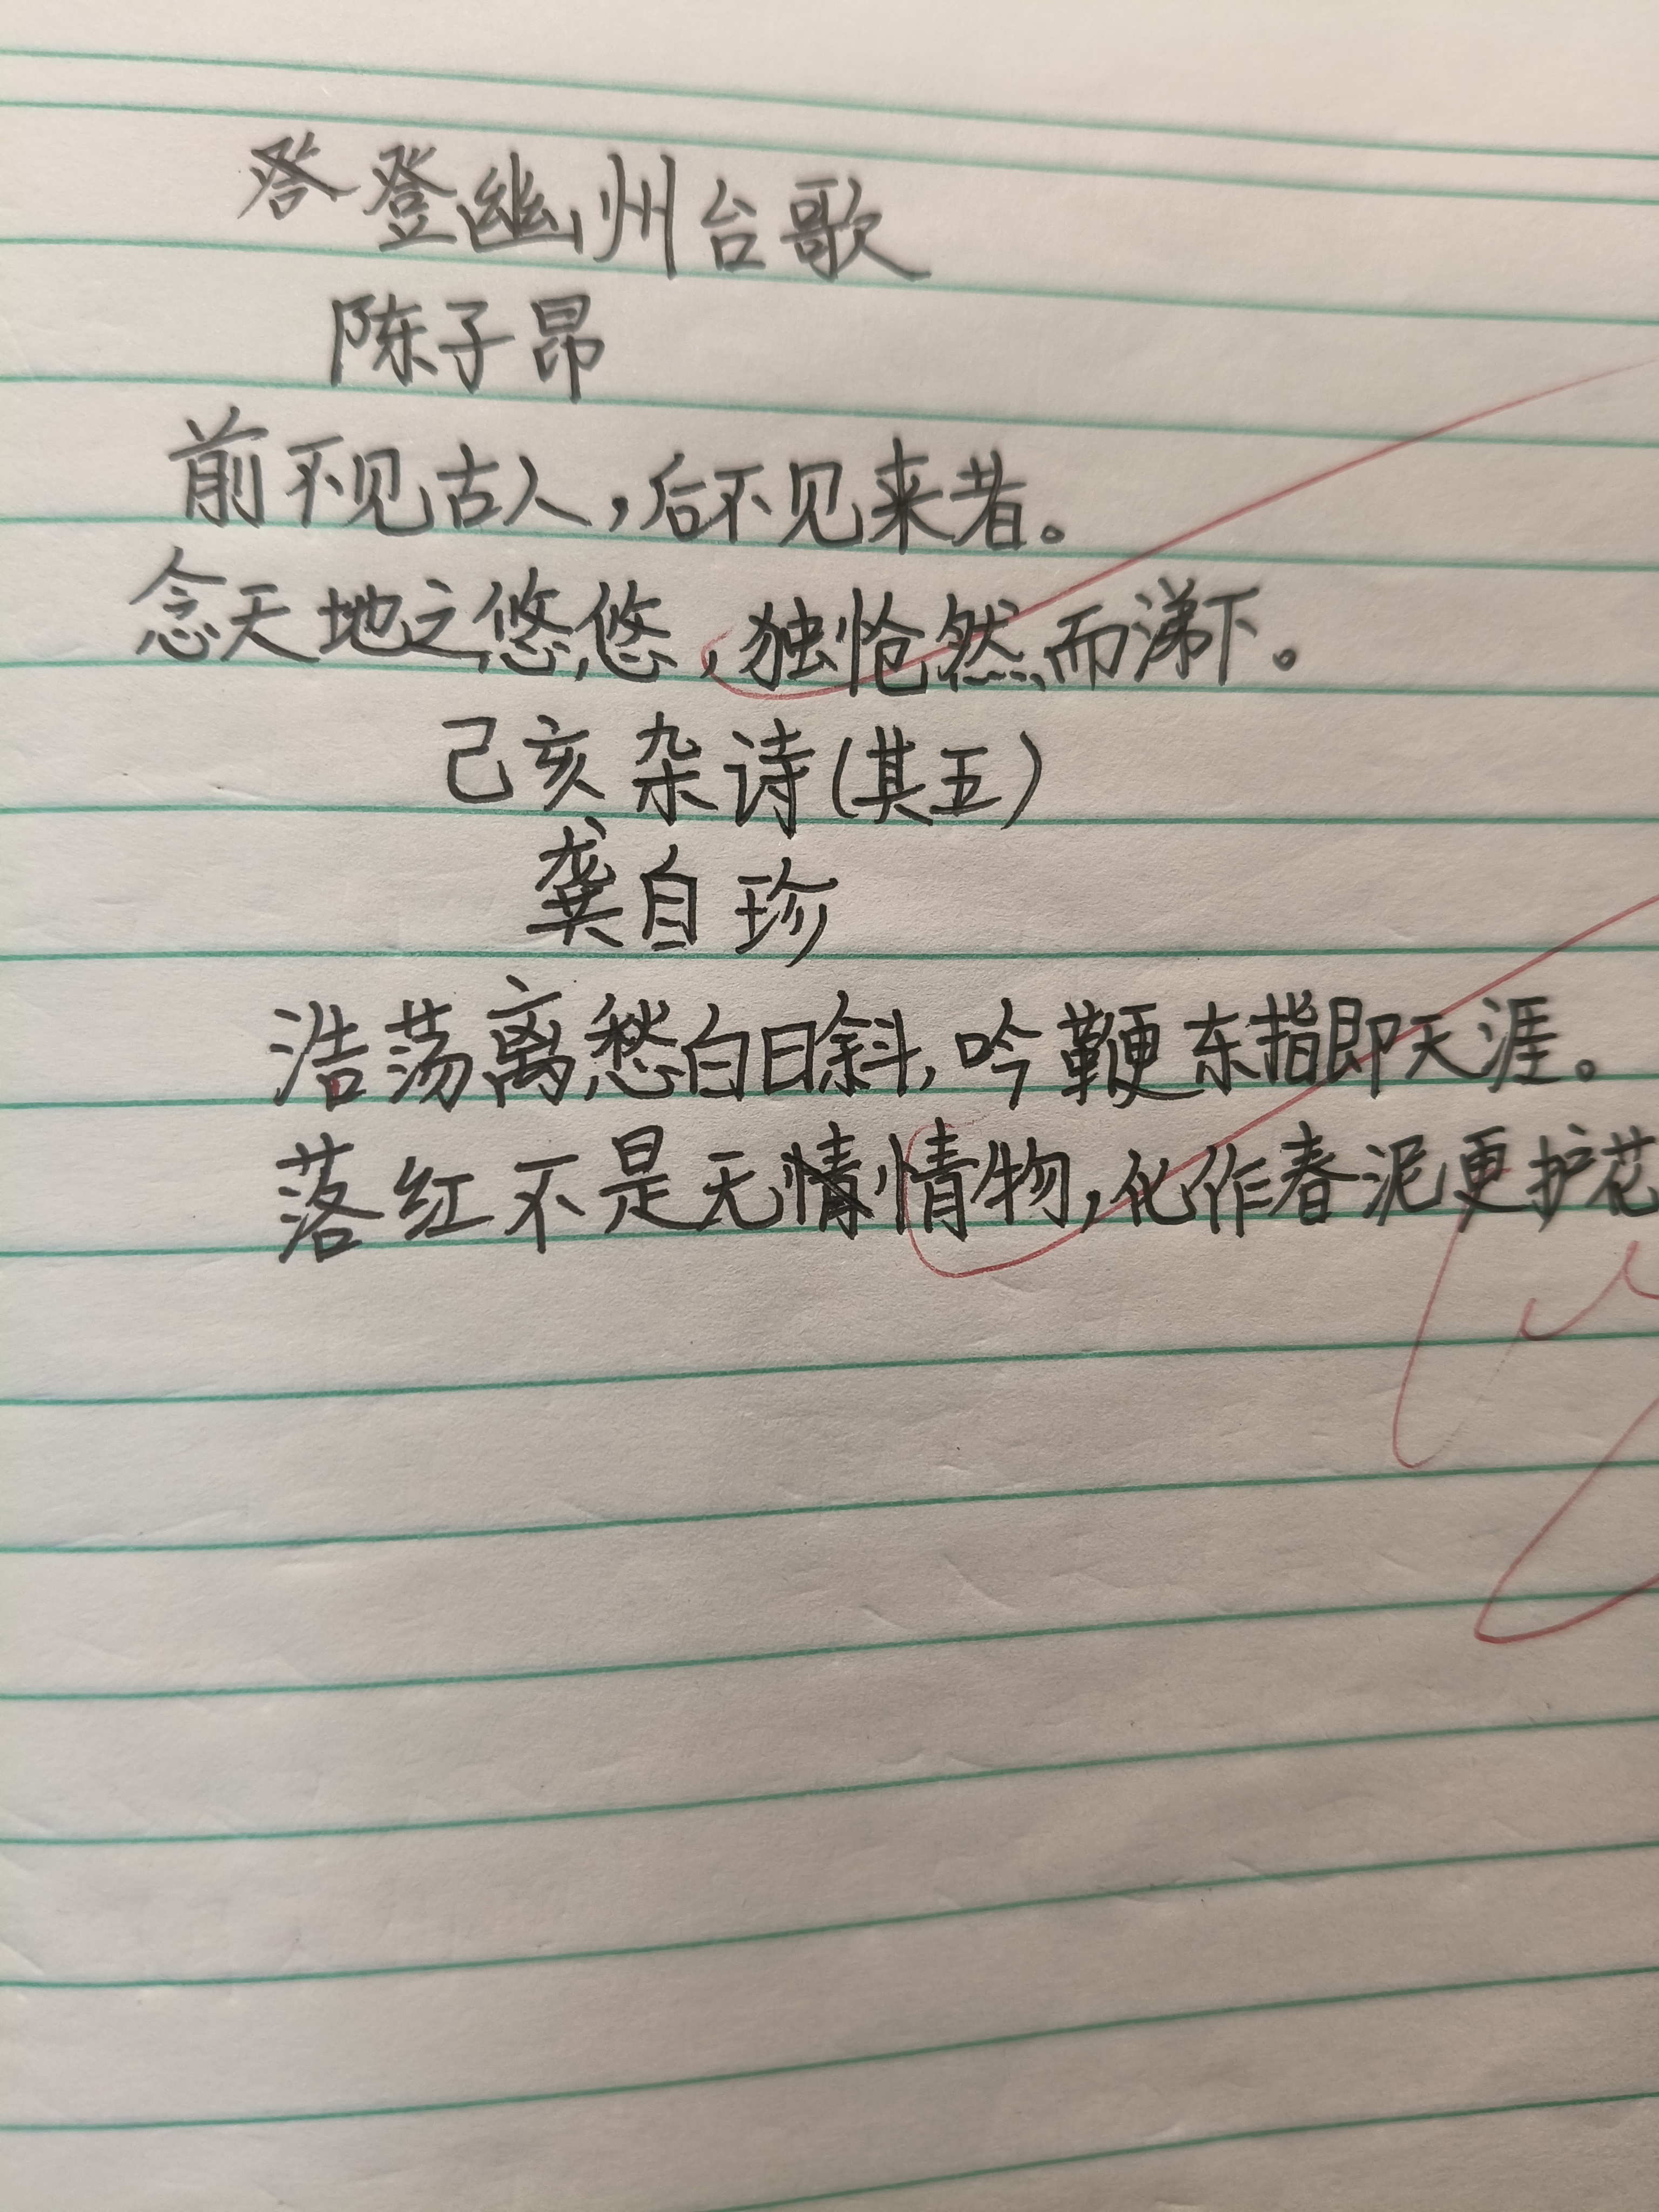 登幽州台歌
陈子昂
前不见古人,后不见来者。
念天地之悠悠,独怆然而涕下。
己亥杂诗(其五)
龚自珍
浩荡离愁白日斜,吟鞭东指即天涯。
落红不是无情物,化作春泥更护花